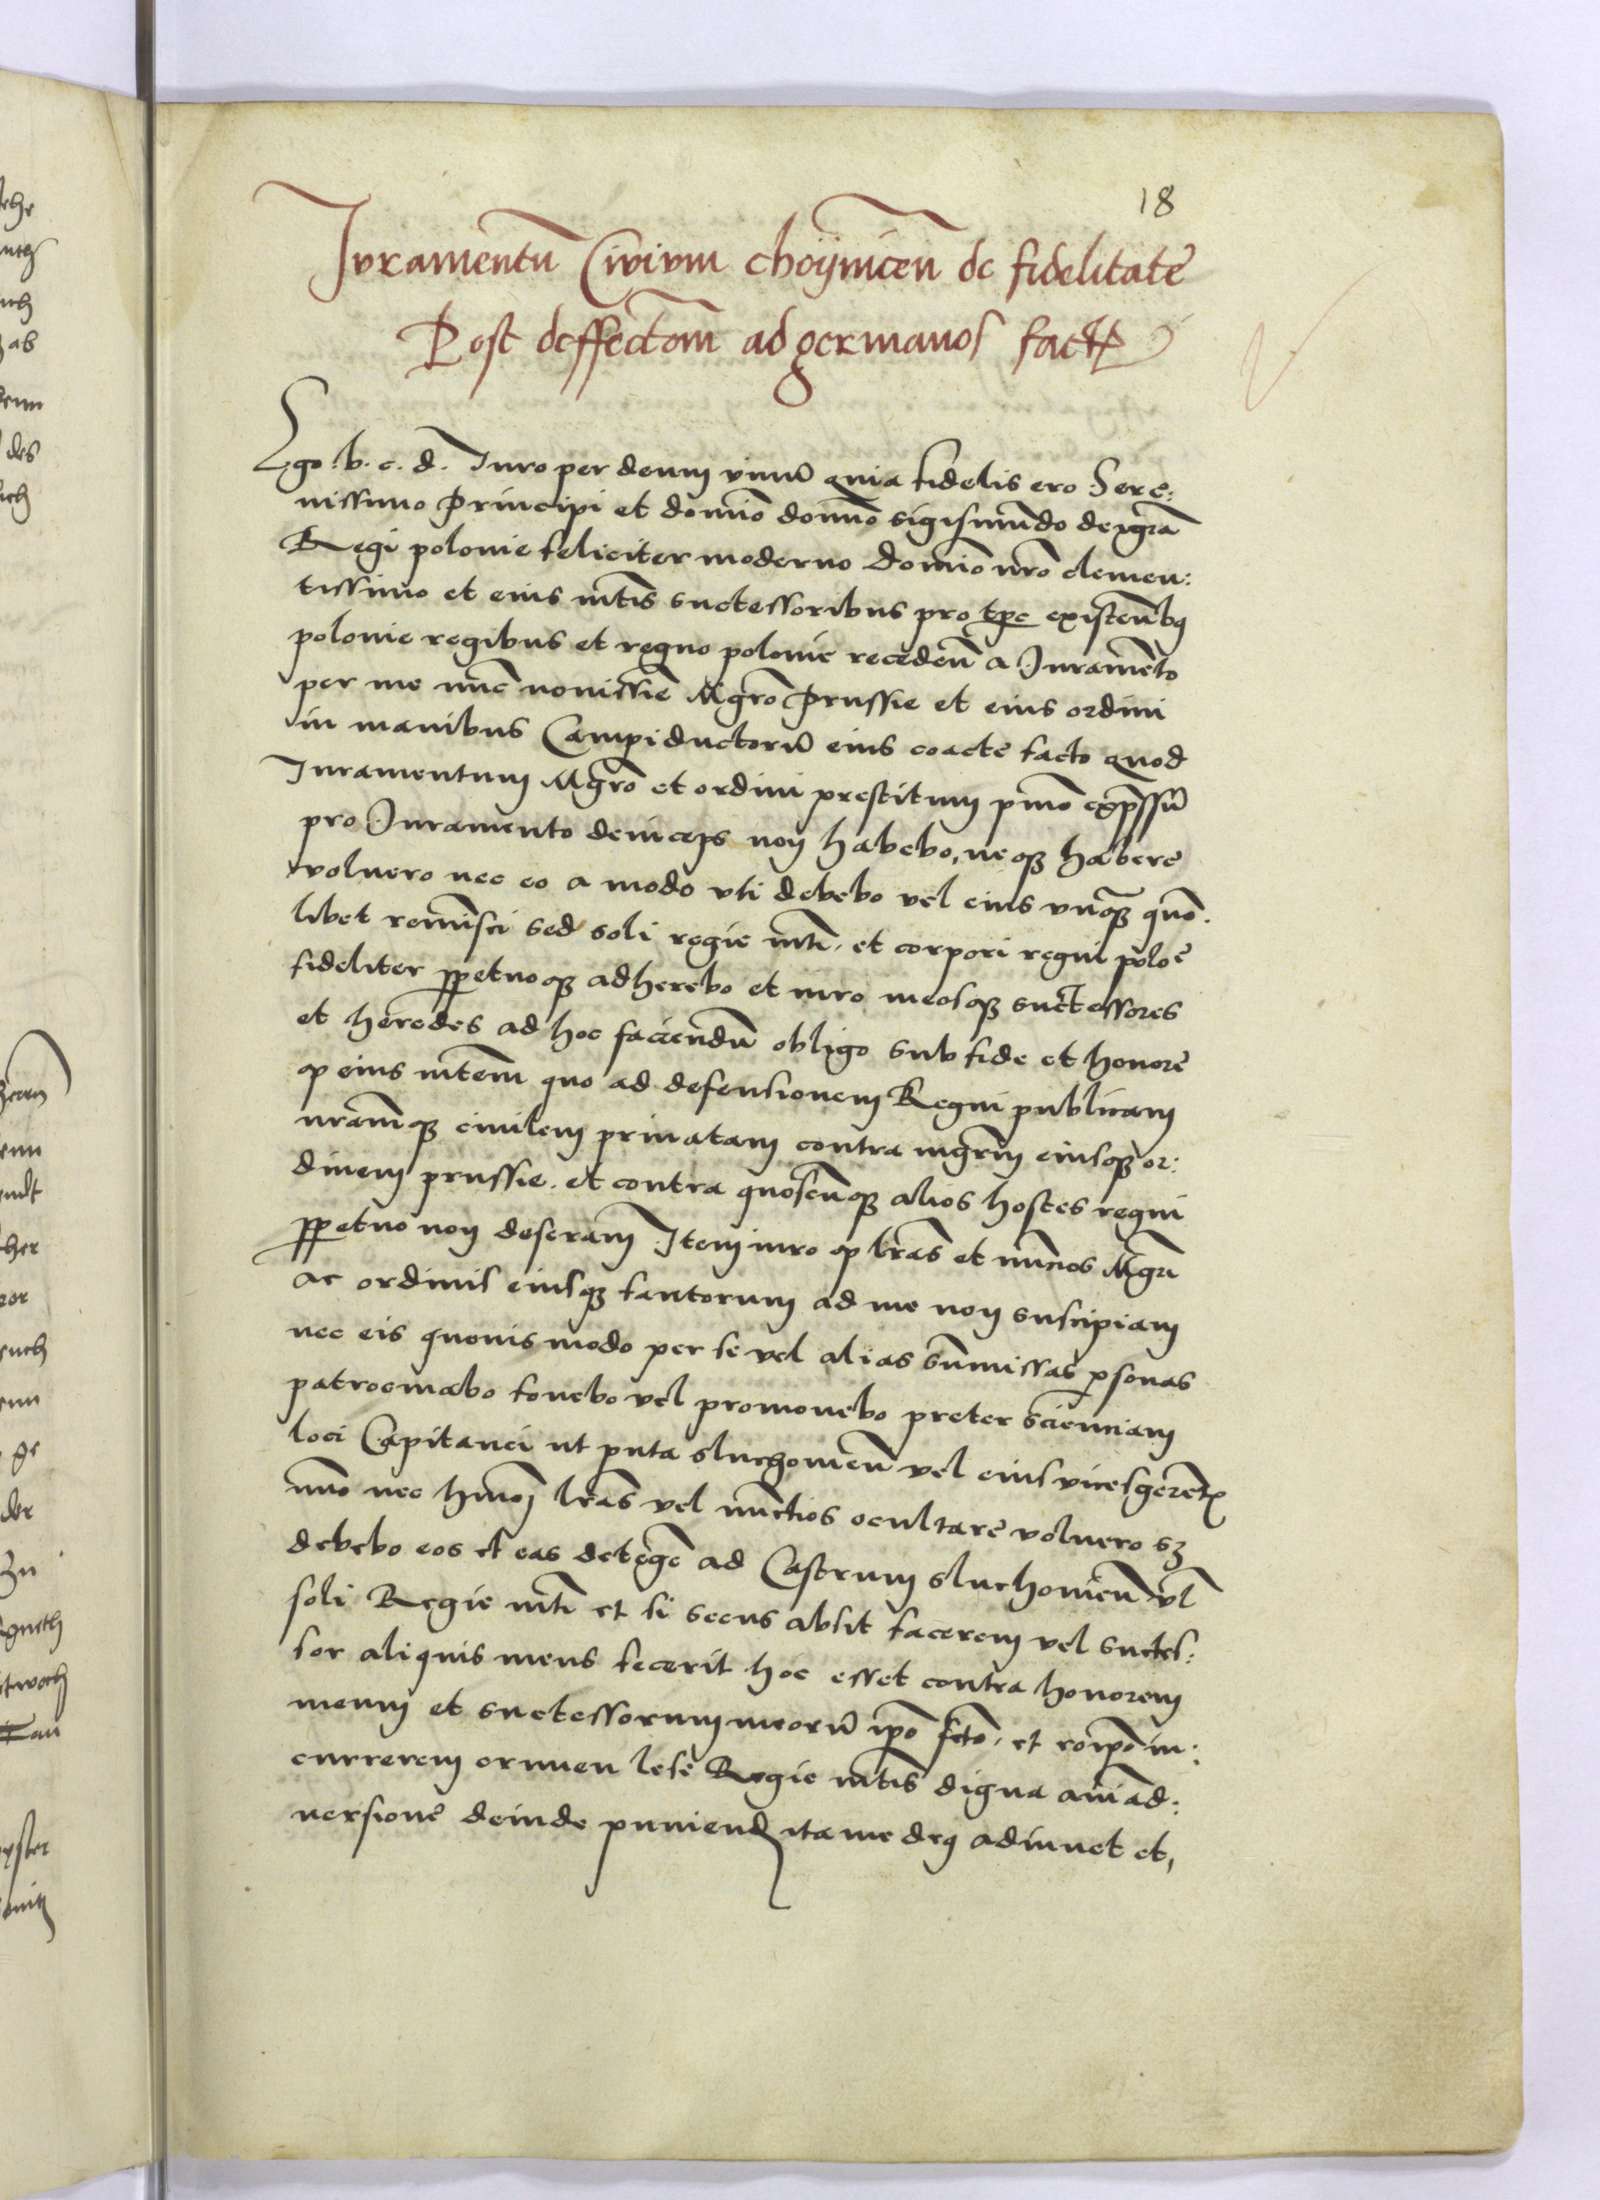 18
Juramentū Civium choynicen̄ de fidelitate
Post deffectōm ad germanos fact
Ego .b. c. d. Juro per deum vivū quia fidelis ero Sere:
nissimo Principi et domīo domīo sigismūndo dei grā
Regi polonie feliciter moderno Domīo nr̄o clemen:
tissimo et eius mtīs suctessoribus pro tp̄e existen̄bq
polonie regibus et regno polonie receden̄ a Juramēto
per me nūc novissīe Mgr̄o Prussie et eius ordini
in manibus Campiductorū eius coacte facto quod
Juramentum Mgr̄o et ordini prestitum pmō exp̄ssū
pro Juramento deinceps non habebo, neqȝ habere
voluero nec eo a modo uti debebo vel eius vnq̄ȝ quō.
libet remīsci sed soli regie mtī. et corpori regni poloē
fideliter ppetuoqȝ adherebo et iuro meosqȝ suctessores
et heredes ad hoc faciendū obligo sub fide et honore
q eius mtēm quo ad defensionem Regni publicam
nr̄amqȝ civilem privatam contra mgrm̄ eiusqȝ or:
dinem prussie. et contra quoscūnqȝ alios hostes regni
ppetuo non deseram Item iuro q lr̄as et nūcios Mgrī
ac ordinis eiusqȝ fautorum ad me non suscipiam
nec eis quovis modo per se vel alias sūmissas psonas
patrocinabo fovebo vel promovebo preter scienciam
loci Capitanei ut puta sluchovien̄ vel eius vicesgerētx
nīmo nec hmōi lr̄as vel nūctios ocultare voluero sȝ
debebo eos et eas detegē ad Castrum sluchovien̄ vl̄
soli Regie mtī et si secus absit facerem vel suctes:
sor aliquis meus fecerit hoc esset contra honorem
meum et suctessorum meorū ip̄o fctō. et eoip̄o in:
currerem crimen lesē Regie mtīs digna aīad:
versionē deinde puniend ita me deq adiuvet et,